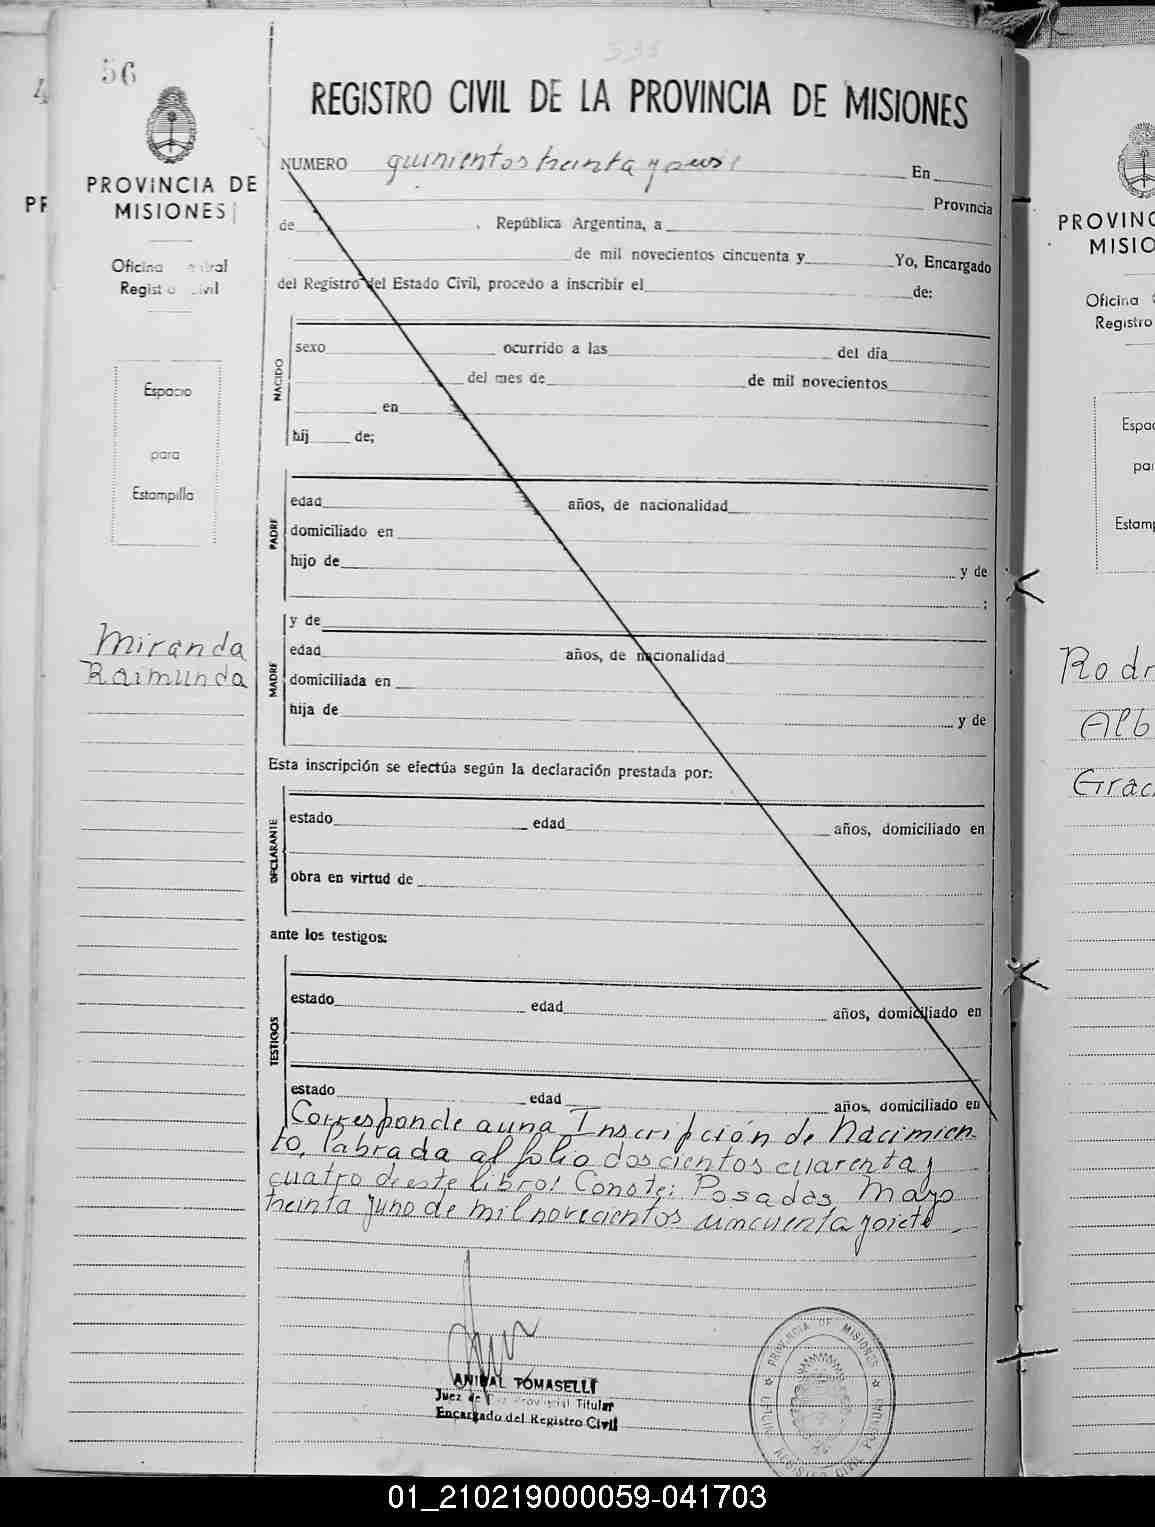 56
PROVINCIA DE
MISIONES
Registro Civil
Espacio
para
Estampilla
Miranda
Raimunda
REGISTRO CIVIL DE LA PROVINCIA DE MISIONES
NUMERO quinientos treinta y En
Provincia
de , República Argentina, a
de mil novecientos cincuenta y Yo, Encargado
del Registro del Estado Civil, procedo a inscribir el de:
NACIDO
sexo ocurrido a las del día
del mes de de mil novecientos
en
hij de;
PADRE
edad años, de nacionalidad
domiciliado en
hijo de y de
;
MADRE
y de
edad años, de nacionalidad
domiciliada en
hija de y de
Esta inscripción se efectúa según la declaración prestada por:
DECLARANTE
estado edad años, domiciliado en
obra en virtud de
ante los testigos:
TESTIGOS
estado edad años, domiciliado en
estado edad años, domiciliado en
Corresponde a una Inscripción de Nacimien-
to, labrada al folio doscientos cuarenta y
cuatro de este libro: Conste: Posadas, Mayo
treinta y uno de mil novecientos cincuenta y siete
ANIBAL TOMASELLI
Juez de Titular
Encargado del Registro Civil
PROVINCIA DE MISIONES
PROVINC
MISIO
Oficina
Registro
Espac
par
Estamp
Rodr
Alb
Grac
01_210219000059-041703